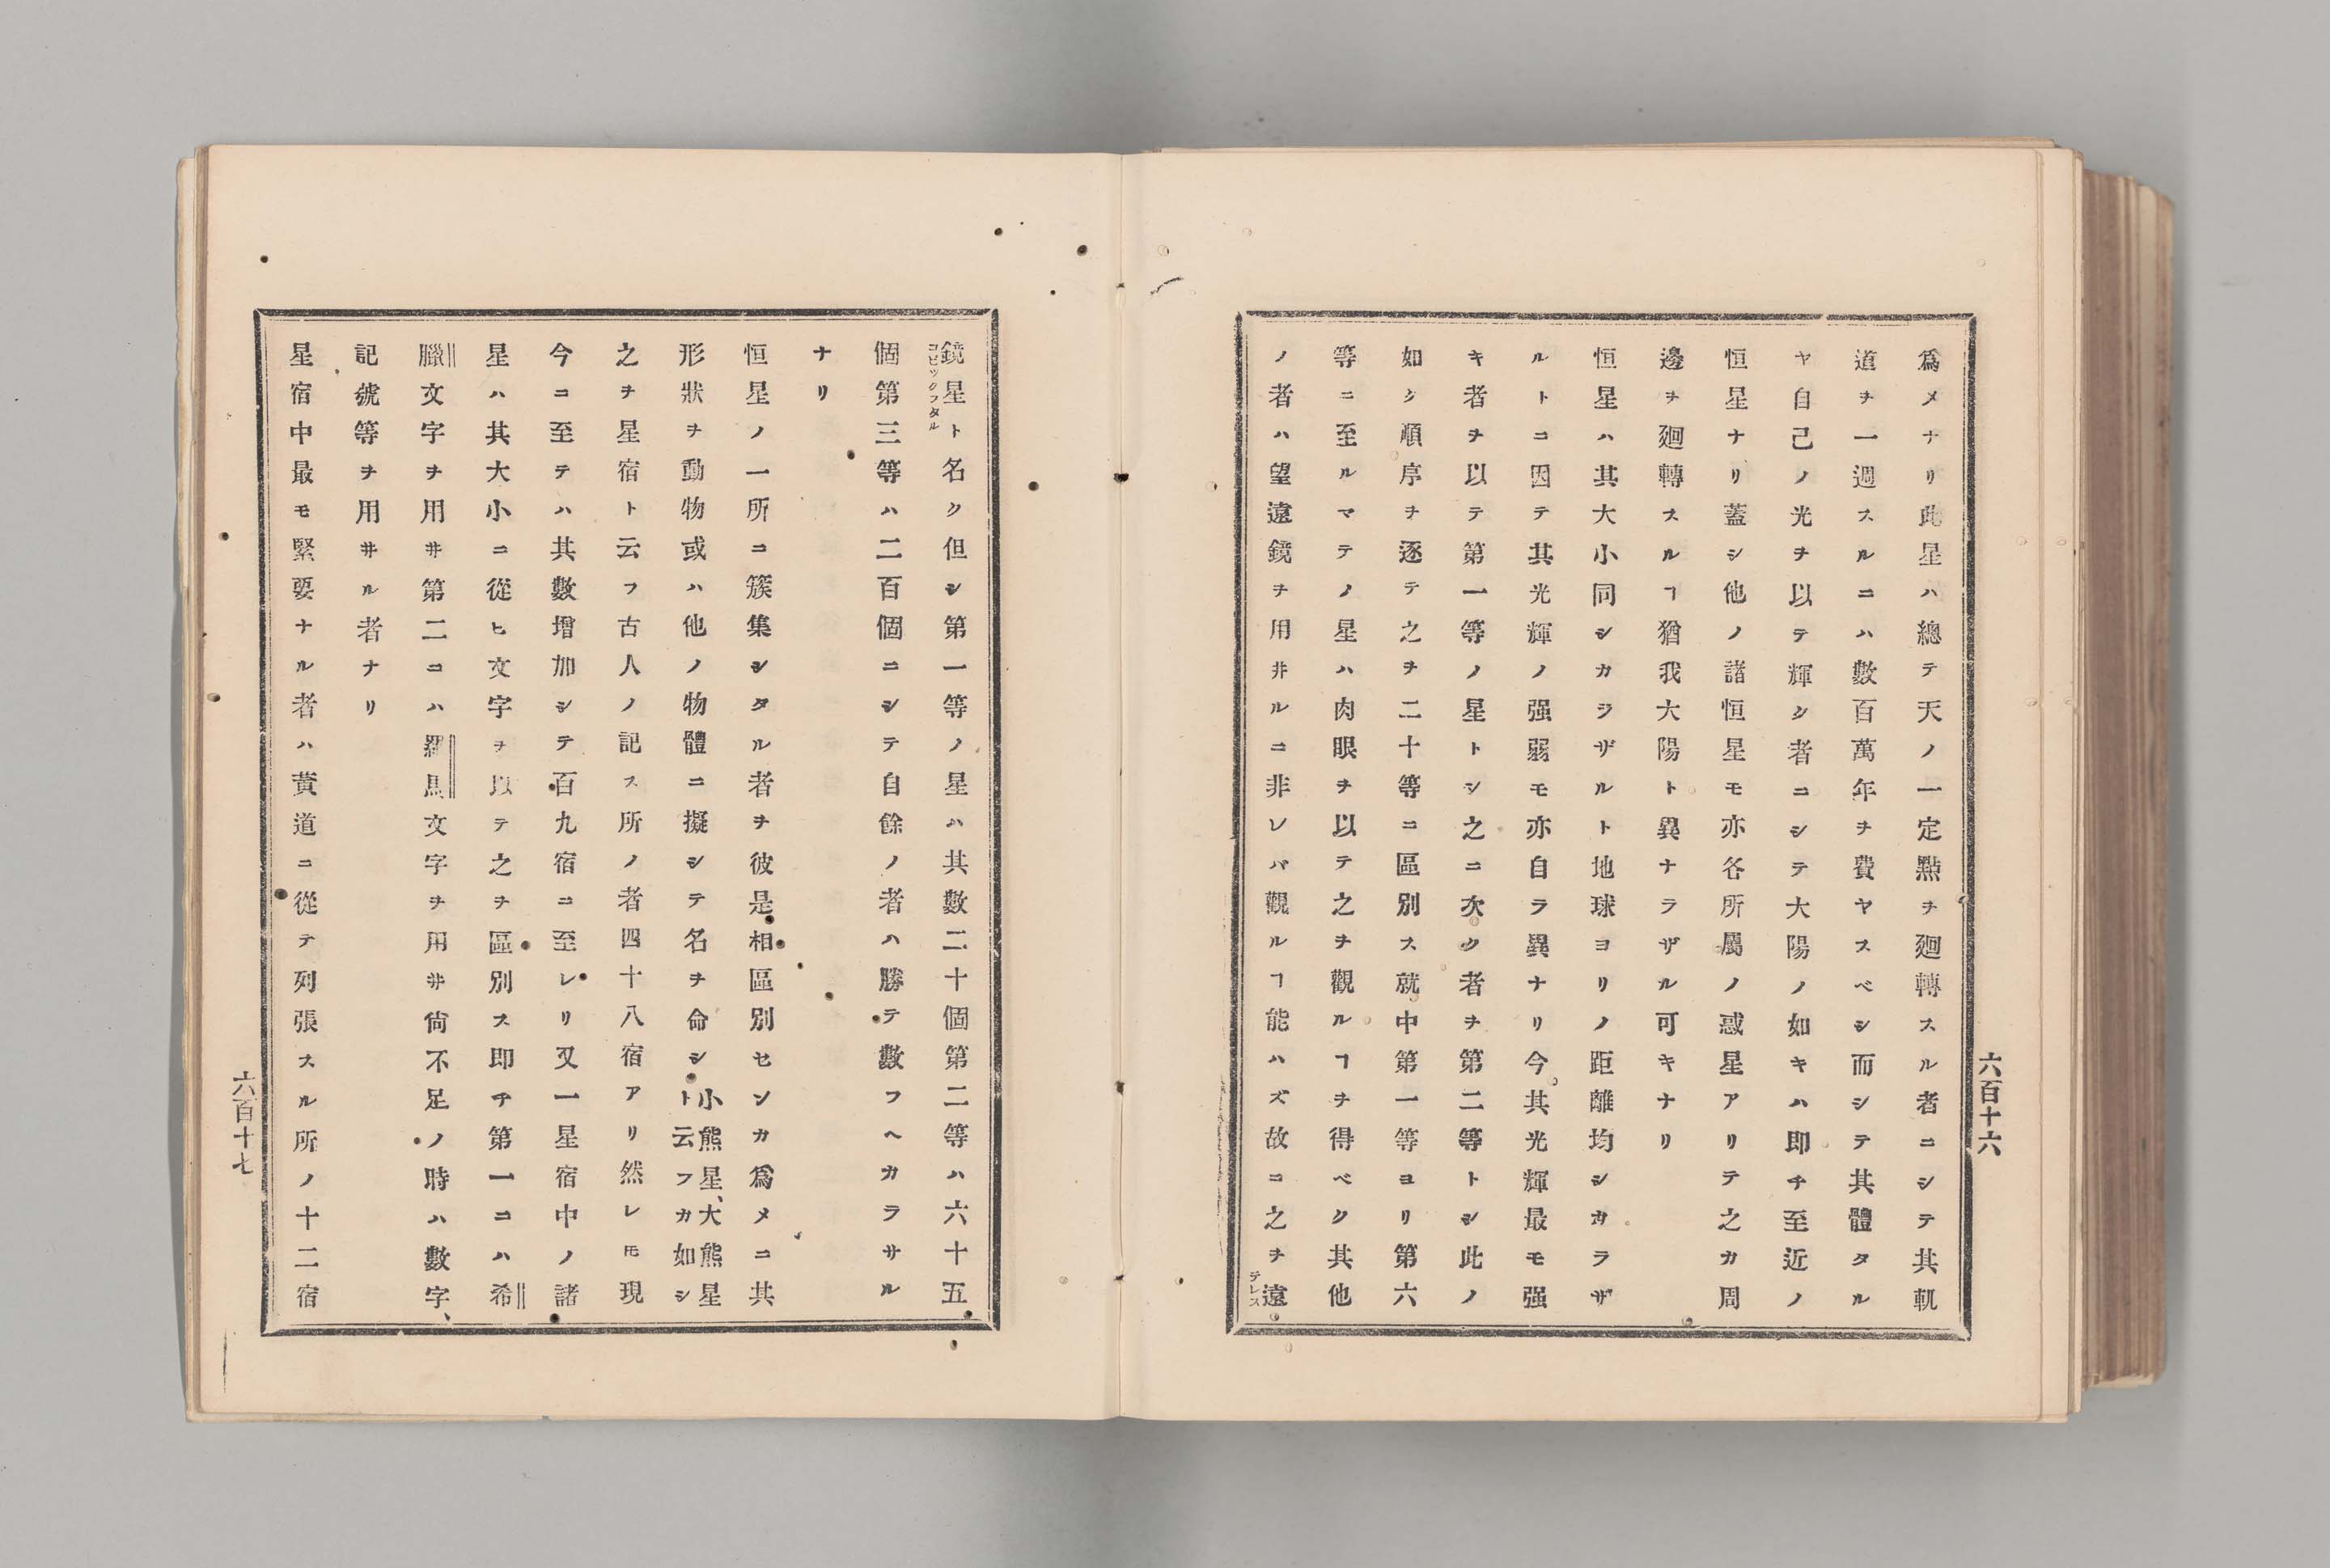 六百十六
爲メナリ此星ハ總テ天ノ一定點ヲ廻轉スル者ニシテ其軌
道ヲ一週スルニハ數百萬年ヲ費ヤスベシ而シテ其體タル
ヤ自己ノ光ヲ以テ輝ク者ニシテ大陽ノ如キハ即チ至近ノ
恒星ナリ蓋シ他ノ諸恒星モ亦各所屬ノ惑星アリテ之カ周
邊ヲ廻轉スルヿ猶我大陽ト異ナラザル可キナリ
恒星ハ其大小同シカラザルト地球ヨリノ距離均シカラザ
ルトニ因テ其光輝ノ强弱モ亦自ラ異ナリ今其光輝最モ强
キ者ヲ以テ第一等ノ星トシ之ニ次ク者ヲ第二等トシ此ノ
如ク順序ヲ逐テ之ヲ二十等ニ區別ス就中第一等ヨリ第六
等ニ至ルマテノ星ハ肉眼ヲ以テ之ヲ觀ルヿヲ得ベク其他
ノ者ハ望遠鏡ヲ用井ルニ非レバ觀ルヿ能ハズ故ニ之ヲ遠
テレス
鏡星ト名ク但シ第一等ノ星ハ其數二十個第二等ハ六十五
コピックスタル
個第三等ハ二百個ニシテ自餘ノ者ハ勝テ數フヘカラサル
ナリ
恒星ノ一所ニ簇集シタル者ヲ彼是相區別センカ爲メニ其
形狀ヲ動物或ハ他ノ物體ニ擬シテ名ヲ命シ小熊星、大熊星
ト云フカ如シ
之ヲ星宿ト云フ古人ノ記ス所ノ者四十八宿アリ然レ𪜈現
今ニ至テハ其數增加シテ百九宿ニ至レリ又一星宿中ノ諸
星ハ其大小ニ從ヒ文字ヲ以テ之ヲ區別ス即チ第一ニハ希
臘文字ヲ用井第二ニハ羅馬文字ヲ用井尙不足ノ時ハ數字、
記號等ヲ用井ル者ナリ
星宿中最モ緊要ナル者ハ黄道ニ從テ列張スル所ノ十二宿
六百十七